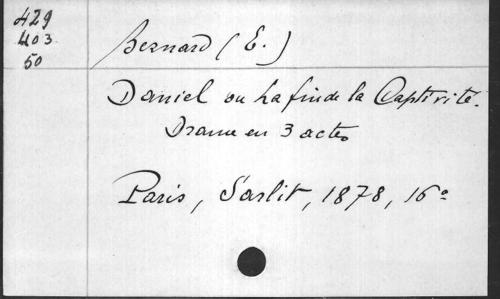 429
403
50
Bernard (E.)
Daniel ou La fin de la Captivité.
Drame en 3 actes
Paris, Sarlit, 1878, 16°